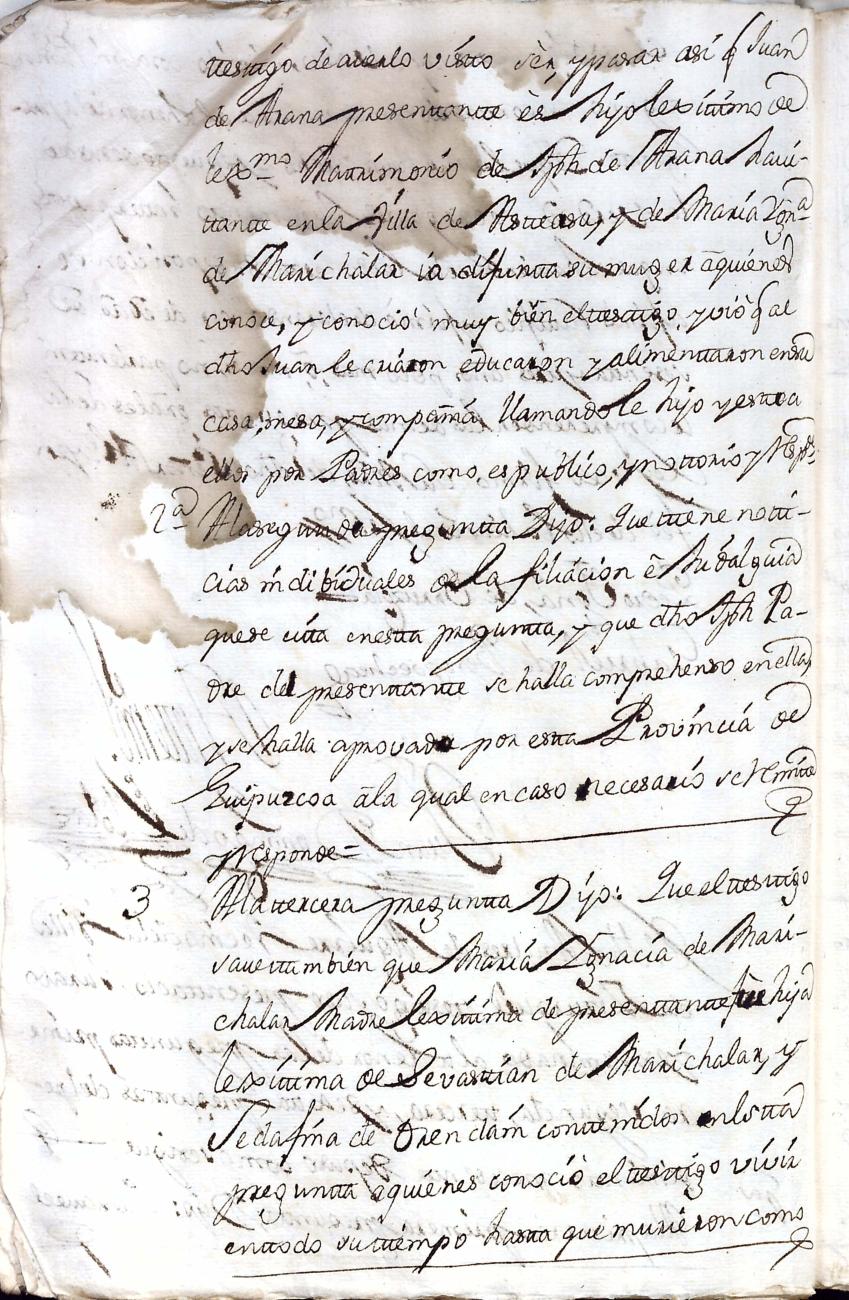 ttestigo de averlo visto ser, y pasar asi q Juan
de Arana presenttantte es hijo lexittimo de
lexmo Mattrimonio de Jph de Arana havi-
ttante en la Villa de Asteasu, y de Maria Ygna
de Marichalar ia difuntta su muger a quienes
conoce, y conocio muy bien el ttesttigo, y vio q al
dho Juan le criaron educaron y alimenttaron en su
casa, mesa, y compañia llamandole hijo y estte a
ellos por Padres como es publico, y nottorio y Respde
2a A la segunda preguntta Dijo: Que ttiene notti-
cias indibiduales de la filiacion e hidalguia
que se citta en estta pregunta, y que dho Jph Pa-
dre del presenttantte se halla comprehenso en ella,
y se halla aprovada por estta Provincia de
Guipuzcoa a la qual en caso necesario se Remitte
y Responde =
3 A la ttercera pregunta Dijo: Que el ttesttigo
save ttambien que Maria Ygnacia de Mari-
chalar Madre lexittima de presenttantte fue hija
lexittima de Sevasttian de Marichalar, y
Sedafina de Orendain conttenidos en la otta
preguntta a quienes conocio el testtigo vivir
en ttodo su ttiempo hasta que murieron como